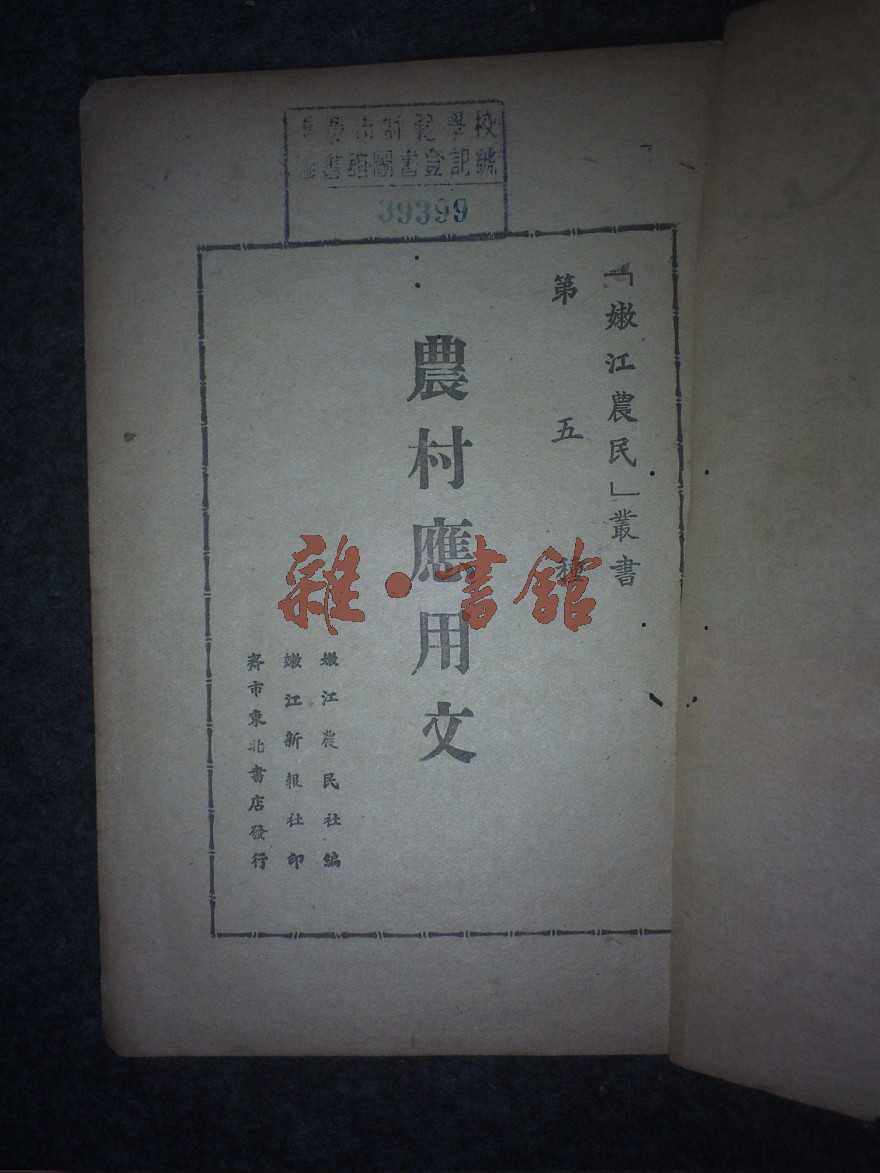 範學校
圖書登記號
39399
「嫩江農民」叢書
第五種
農村應用文
嫩江農民社編
嫩江新報社印
齊市東北書店發行
雜·書館